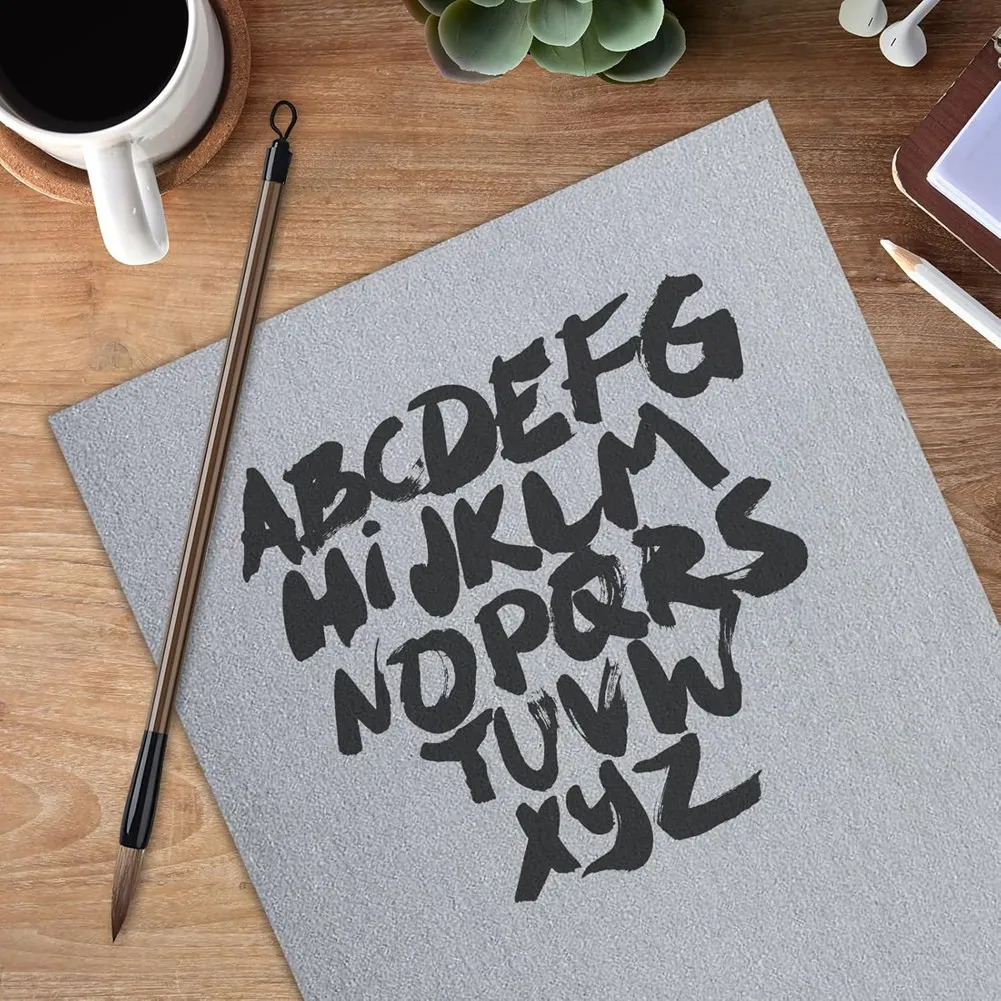 ABCDEFG
HiJKLM
NOPQRS
TUVW
XyZ